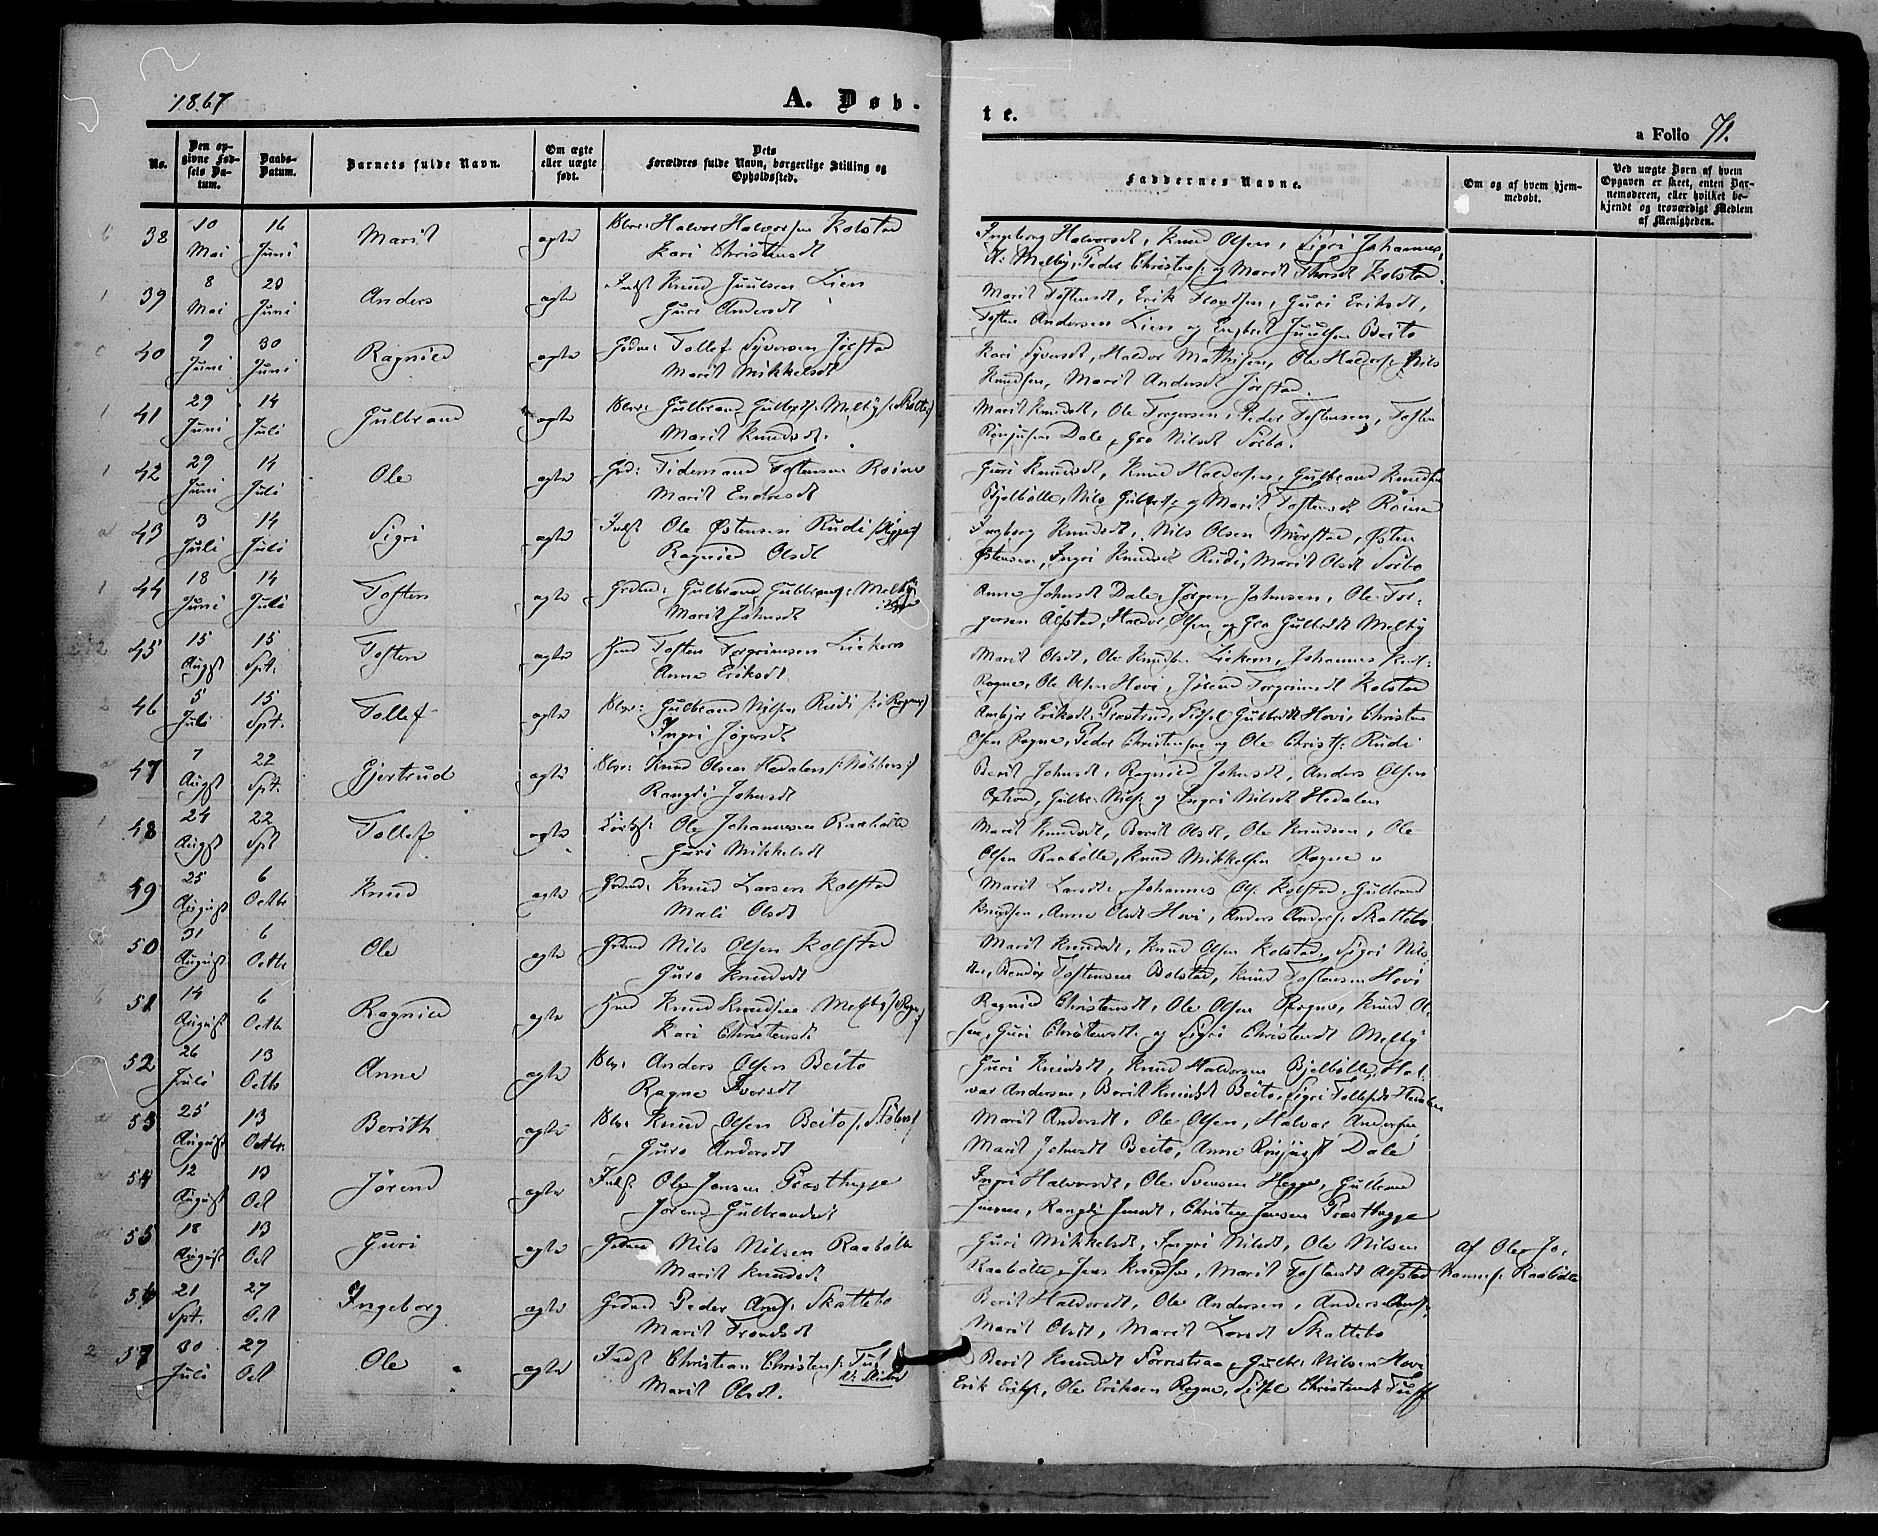 1867
A. Døb-
te.
a Folio 71.
No.
Den op-
givne Fød-
sels Da-
tum.
Daabs-
Datum.
Barnets fulde Navn.
Om ægte
eller uægte
født.
Dets
Forældres fulde Navn, borgerlige Stilling og
Opholdssted.
Faddernes Navne.
Om og af hvem hjem-
medøbt.
Ved uægte Børn af hvem
Opgaven er skeet, enten Bar-
nemoderen, eller hvilket be-
kjendt og troværdigt Medlem
af Menigheden.
38 10 Mai 16 Juni Marit ægte Halvor Halvorsen Kolstad
Kari Christensdt
Ingeborg Halvorsdt, Knud Olsen, Sigri Johannes
N. Melby, Peder Christens: og Marit Thorsdt Kolstad
39 8 Mai 20 Juni Anders ægte Indst Knud Juulsen Lien
Guri Andersdt
Marit Tostensdt, Erik Trondsen, Guri Eriksdt,
Tosten Andersen Lien og Engbret Juulsen Beito
40 9 Juni 30 Juni Ragnild ægte Tollef Syversen Jørstad
Marit Mikkelsdt
Kari Syversdt, Haldor Mathisen, Ole Haldors: Nils
Knudsen, Marit Andersdt Jørstad.
41 29 Juni 14 Juli Gulbrand ægte Gulbrand Gulbrds: Melby
Marit Knudsdt.
Marit Knudsdt, Ole Torgersen, Peder Tostensen, Tosten
Dale, Gro Nilsdt Sørbo.
42 29 Juni 14 Juli Ole ægte Tidemand Tostensen
Marit Endresdt
Guri Knudsdt, Knud Haldorsen, Gulbrand Knudsen
Bjelbølle, Nils Gulbrds: og Marit Tostensdt
43 3 Juli 14 Juli Sigri ægte Indst Ole Østensen Rudi
Ragnild Olsdt
Ingeborg Knudsdt, Nils Olsen Mørstad, Østen
Østensen, Ingri Knudsdt Rudi, Marit Olsdt Sørbo
44 18 Juni 14 Juli Tosten ægte Gulbrand Gulbrands: Melby
Marit Johnsdt
Anne Johnsdt Dale, Jørgen Johnsen, Ole Tor-
gersen Alfstad, Haldor Olsen og Gro Gulbrdt Melby
45 15 Augst 15 Spt. Tosten ægte Tosten Torgrimsen Liekern
Anne Eriksdt
Marit Olsdt, Ole Knudsen Liekern, Johannes
Rogne, Ole Olsen Hovi, Jørend Torgrimsdt Kolstad
46 5 Juli 15 Spt. Tollef ægte Gulbrand Nilsen Rudi
Ingri
Ambjør Eriksdt Præstrud, Sidsel Gulbrdt Hovi, Christen
Olsen Rogne, Peder Christensen og Ole Christs: Rudi
47 7 Augst 22 Spt. Gjertrud ægte Knud Olsen Hedalen
Rangdi Johnsdt
Berit Johnsdt, Ragnild Johnsdt, Anders Olsen
Gulbr. Nils: og Ingri Nilsdt Hedalen
48 24 Augst 22 Spt Tollef ægte Ole Johannesen Raabølle
Guri Mikkelsdt
Marit Knudsdt, Berit Olsdt, Ole Knudsen, Ole
Olsen Raabølle, Knud Mikkelsen Rogne
49 25 August 6 Octbr Knud ægte Knud Larsen Kolstad
Mali Olsdt
Marit Larsdt, Johannes Ols: Kolstad, Gulbrand
Knudsen, Anne Olsdt Hovi, Anders Anders: Skattebo
50 31 August 6 Octbr Ole ægte Nils Olsen Kolstad
Guro Knudsdt
Marit Knudsdt, Knud Olsen Kolstad, Sigri Nils-
dtr, Bendix Tostensen Bolstad, Knud Tostensen Hovi
51 14 August 6 Octbr Ragnild ægte Knud Knudsen Melby
Kari Christensdt
Ragnild Christensdt, Ole Olsen Rogne, Knud Ol-
sen, Guri Christensdt og Sigri Christensdt Melby
52 26 Juli 13 Octb Anne ægte Anders Olsen Beito
Ragne Iversdt
Guri Knudsdt, Knud Haldorsen Bjelbølle, Hal-
var Andersen, Berit Knudsdt Beito, Sigri Tollefsdt Hedalen
53 25 August 13 Octbr. Berith ægte Knud Olsen Beito
Guro Andersdt
Marit Andersdt, Ole Olsen, Halvar Andersen,
Marit Johnsdt Beito, Anne Dale
54 12 August 13 Oct Jørend ægte Indst Ole Jensen Præsthegge
Jørend Gulbrandsdt
Ingri Halvorsdt, Ole Svensen Hegge, Gulbrand
Jensen, Rangdi Jensdt, Christen Jensen Præsthegge
55 18 August 13 Oct Guri ægte Nils Nilsen Raabølle
Marit Knudsdt
Guri Mikkelsdt, Ingri Nilsdt, Ole Nilsen
Raabølle, Jens Knudsen, Marit Tostensdt Alfstad
Af Ole Jo-
hannes: Raabølle
56 21 Spt. 27 Oct Ingeborg ægte Peder Ands: Skattebo
Marit Trondsdt
Berit Haldorsdt, Ole Andersen, Anders Ands:,
Marit Olsdt, Marit Larsdt Skattebo
57 30 Juli 29 Oct Ole ægte Indst Christian Christens:
Marit Olsdt.
Berit Knudsdt, Gulbr: Nilsen Hovi
Erik Eriks:, Ole Eriksen Rogne, Sidsel Christensdt